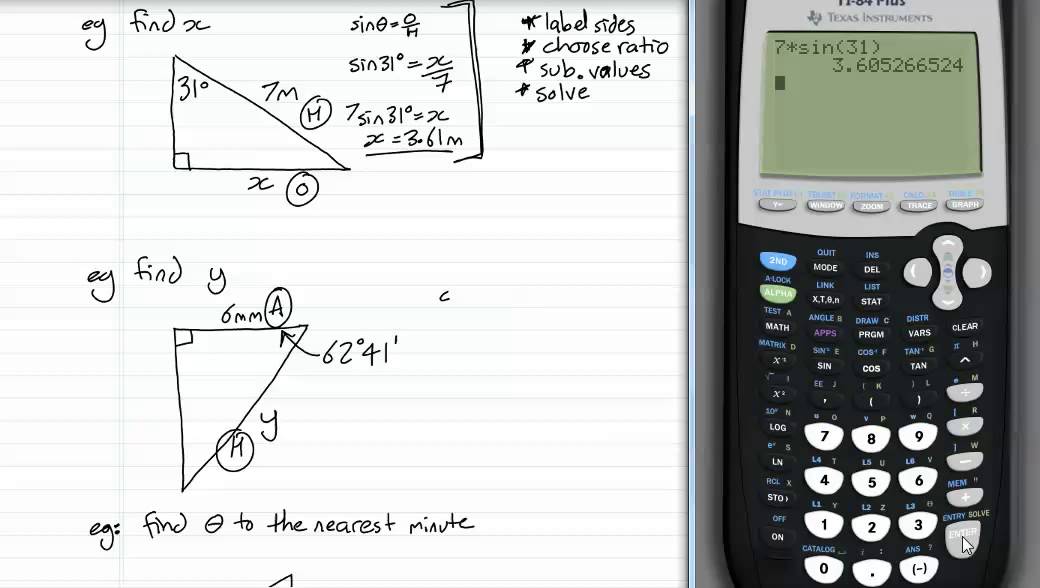 eg find x
sinθ = O/H
sin31° = x/7
7sin31° = x
x = 3.61m
* label sides
* choose ratio
* sub. values
* solve
31°
7m
H
x
O
eg find y
6mm
A
c
62°41'
y
H
eg: find θ to the nearest minute
TI-84 Plus
TEXAS INSTRUMENTS
7*sin(31)
3.605266524
STAT PLOT F1 TBLSET F2 FORMAT F3 CALC F4 TABLE F5
Y= WINDOW ZOOM TRACE GRAPH
QUIT INS
2ND MODE DEL
A-LOCK LINK LIST
ALPHA X,T,θ,n STAT
TEST A ANGLE B DRAW C DISTR
MATH APPS PRGM VARS CLEAR
MATRIX D SIN⁻¹ E COS⁻¹ F TAN⁻¹ G π H
x⁻¹ SIN COS TAN ^
√ I EE J { K } L e M
x² , ( ) ÷
10ˣ N u O v P w Q [ R
LOG 7 8 9 ×
eˣ S L4 T L5 U L6 V ] W
LN 4 5 6 −
RCL X L1 Y L2 Z L3 θ MEM "
STO▸ 1 2 3 +
OFF CATALOG ⎵ i : ANS ? ENTRY SOLVE
ON 0 . (-) ENTER